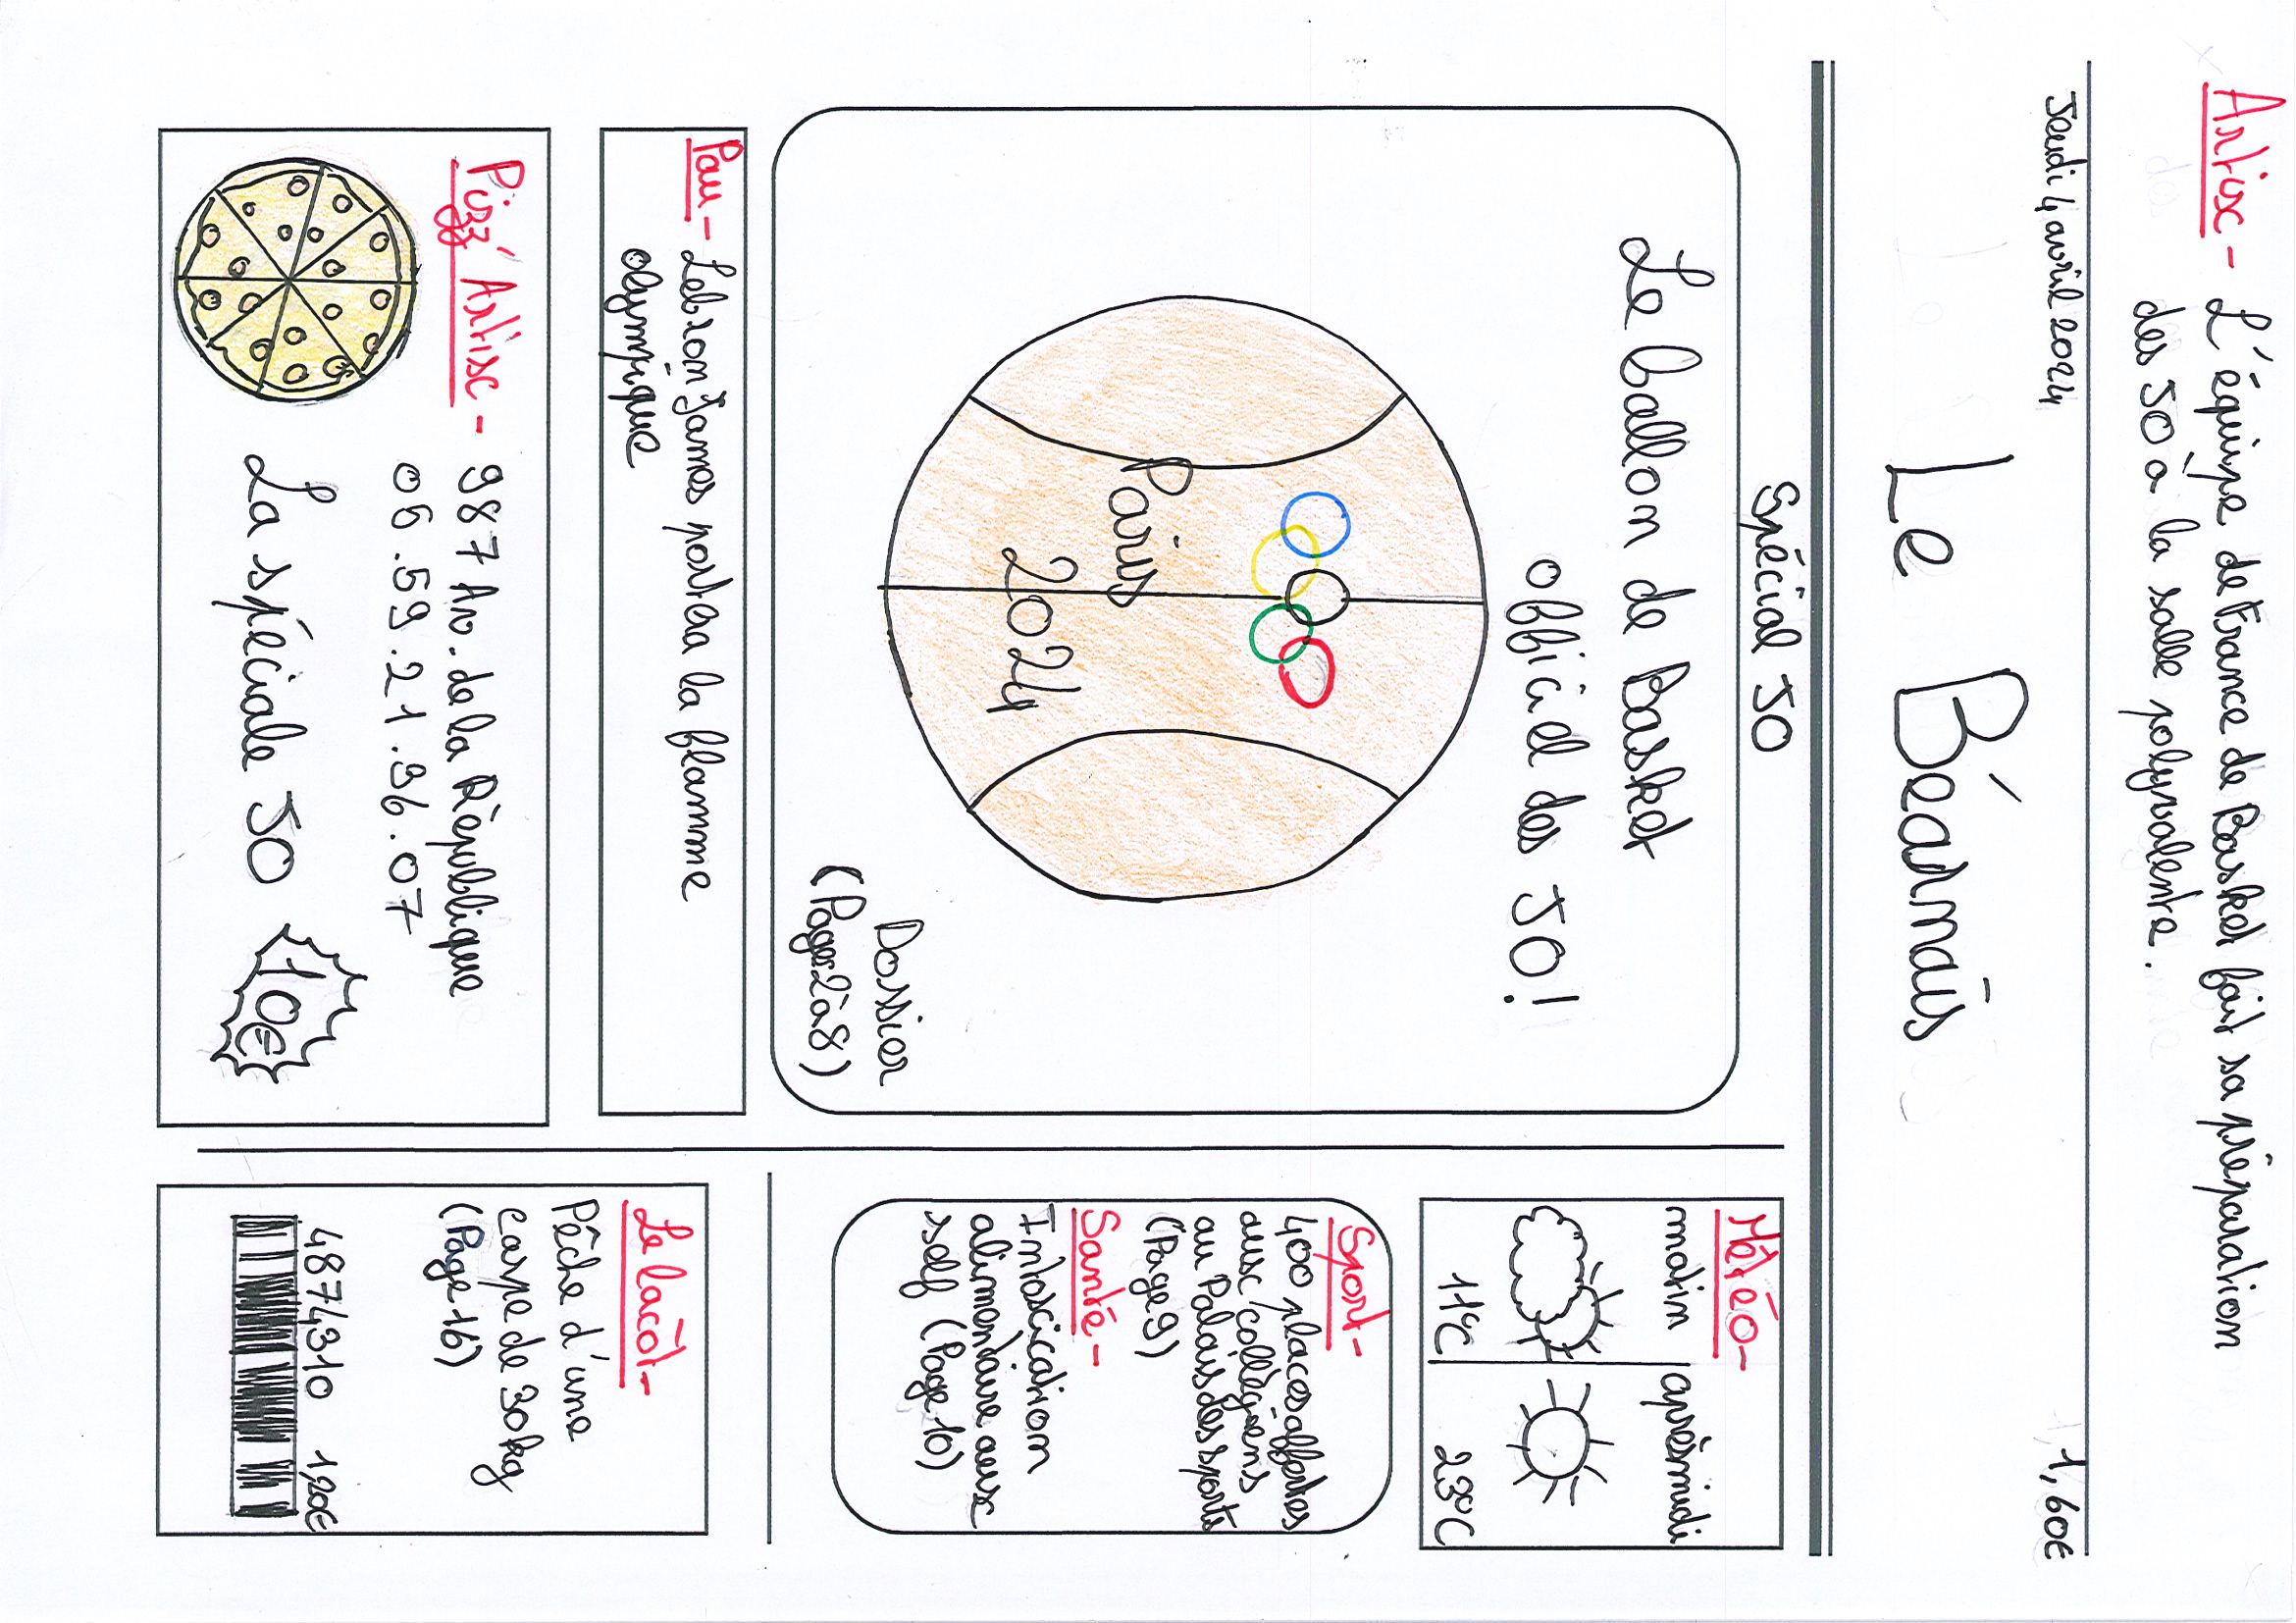 Artix - L'équipe de France de Basket fait sa préparation
des JO à la salle polyvalente.
Jeudi 4 avril 2024
1,60€
Le Béarnais
Spécial JO
Le ballon de Basket
officiel des JO!
Paris
2024
Dossier
(Pages 2 à 8)
Pau - Lebron James portera la flamme
olympique
Pizz'Artix - 987 Av. de la République
06.59.21.96.07
La spéciale JO 10€
Météo -
matin après midi
11°C 23°C
Sport -
400 places offertes
aux collégiens
au Palais des sports
(Page 9)
Santé -
Intoxication
alimentaire aux
self (Page 10)
Le lacôt -
Pêche d'une
carpe de 30kg
(Page 16)
4874310 1,20€